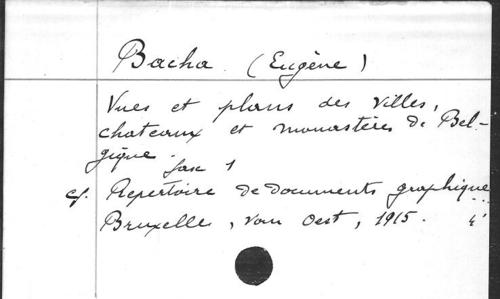 Bacha (Eugène)
Vues et plans des villes,
chateaux et monastères de Bel-
gique.
fasc 1
cf. Repertoire de documents graphique
Bruxelles, Van Oest, 1915. 4°